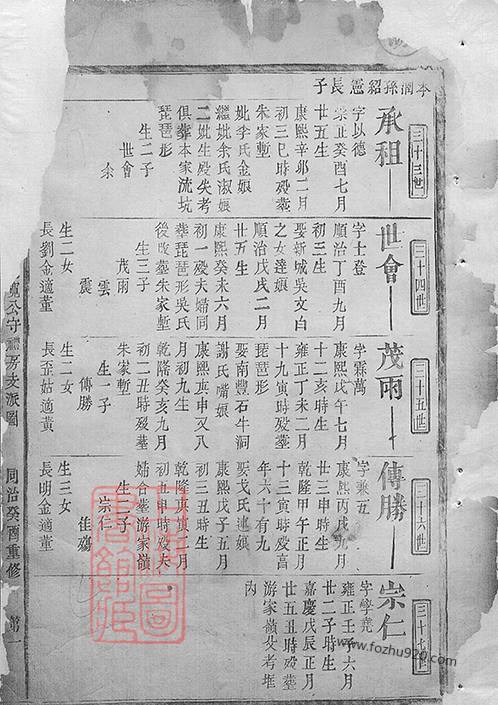 本潤孫紹憲長子
三十三世
承祖
字以德
崇正癸酉七月
廿五生
康熙辛邜二月
初三巳時殁塟
朱家塹
妣李氏金娘
繼妣余氏淑娘
二妣生殁失考
俱葬本家流坑
琵琶形
生二子
世會
余
三十四世
世會
字士登
順治丁酉九月
初三生
娶新城吳文白
之女達娘
順治戊戌二月
廿五生
康熙癸未六月
初一殁夫婦同
塟琵琶形吳氏
後改塟朱家塹
生三子
茂雨
雲
震
生二女
長劉金適董
三十五世
茂雨
字霖萬
康熙戊午七月
十二亥時生
雍正丁未二月
十九寅時殁塟
琵琶形
娶南豐石牛洞
謝氏嘴娘
康熙庚申又八
月初九生
乾隆癸亥九月
初二丑時殁塟
朱家塹
生一子
傳勝
生二女
長歪姑適黃
三十六世
傳勝
字兼五
康熙丙戌九月
廿三申時生
乾隆甲午正月
十三寅時殁高
年六十有九
娶戈氏連娘
康熙戊子五月
初三丑時生
乾隆庚寅二月
初五申時殁夫
婦合塟游家嶺
生子
宗仁
佳殤
生三女
長明金適董
三十七世
宗仁
字學堯
雍正壬子六月
廿二子時生
嘉慶戊辰正月
廿五丑時殁塟
游家嶺父考堆
内
寬公守禮房支派圖
同治癸酉重修
第一
www.fozhu920.com